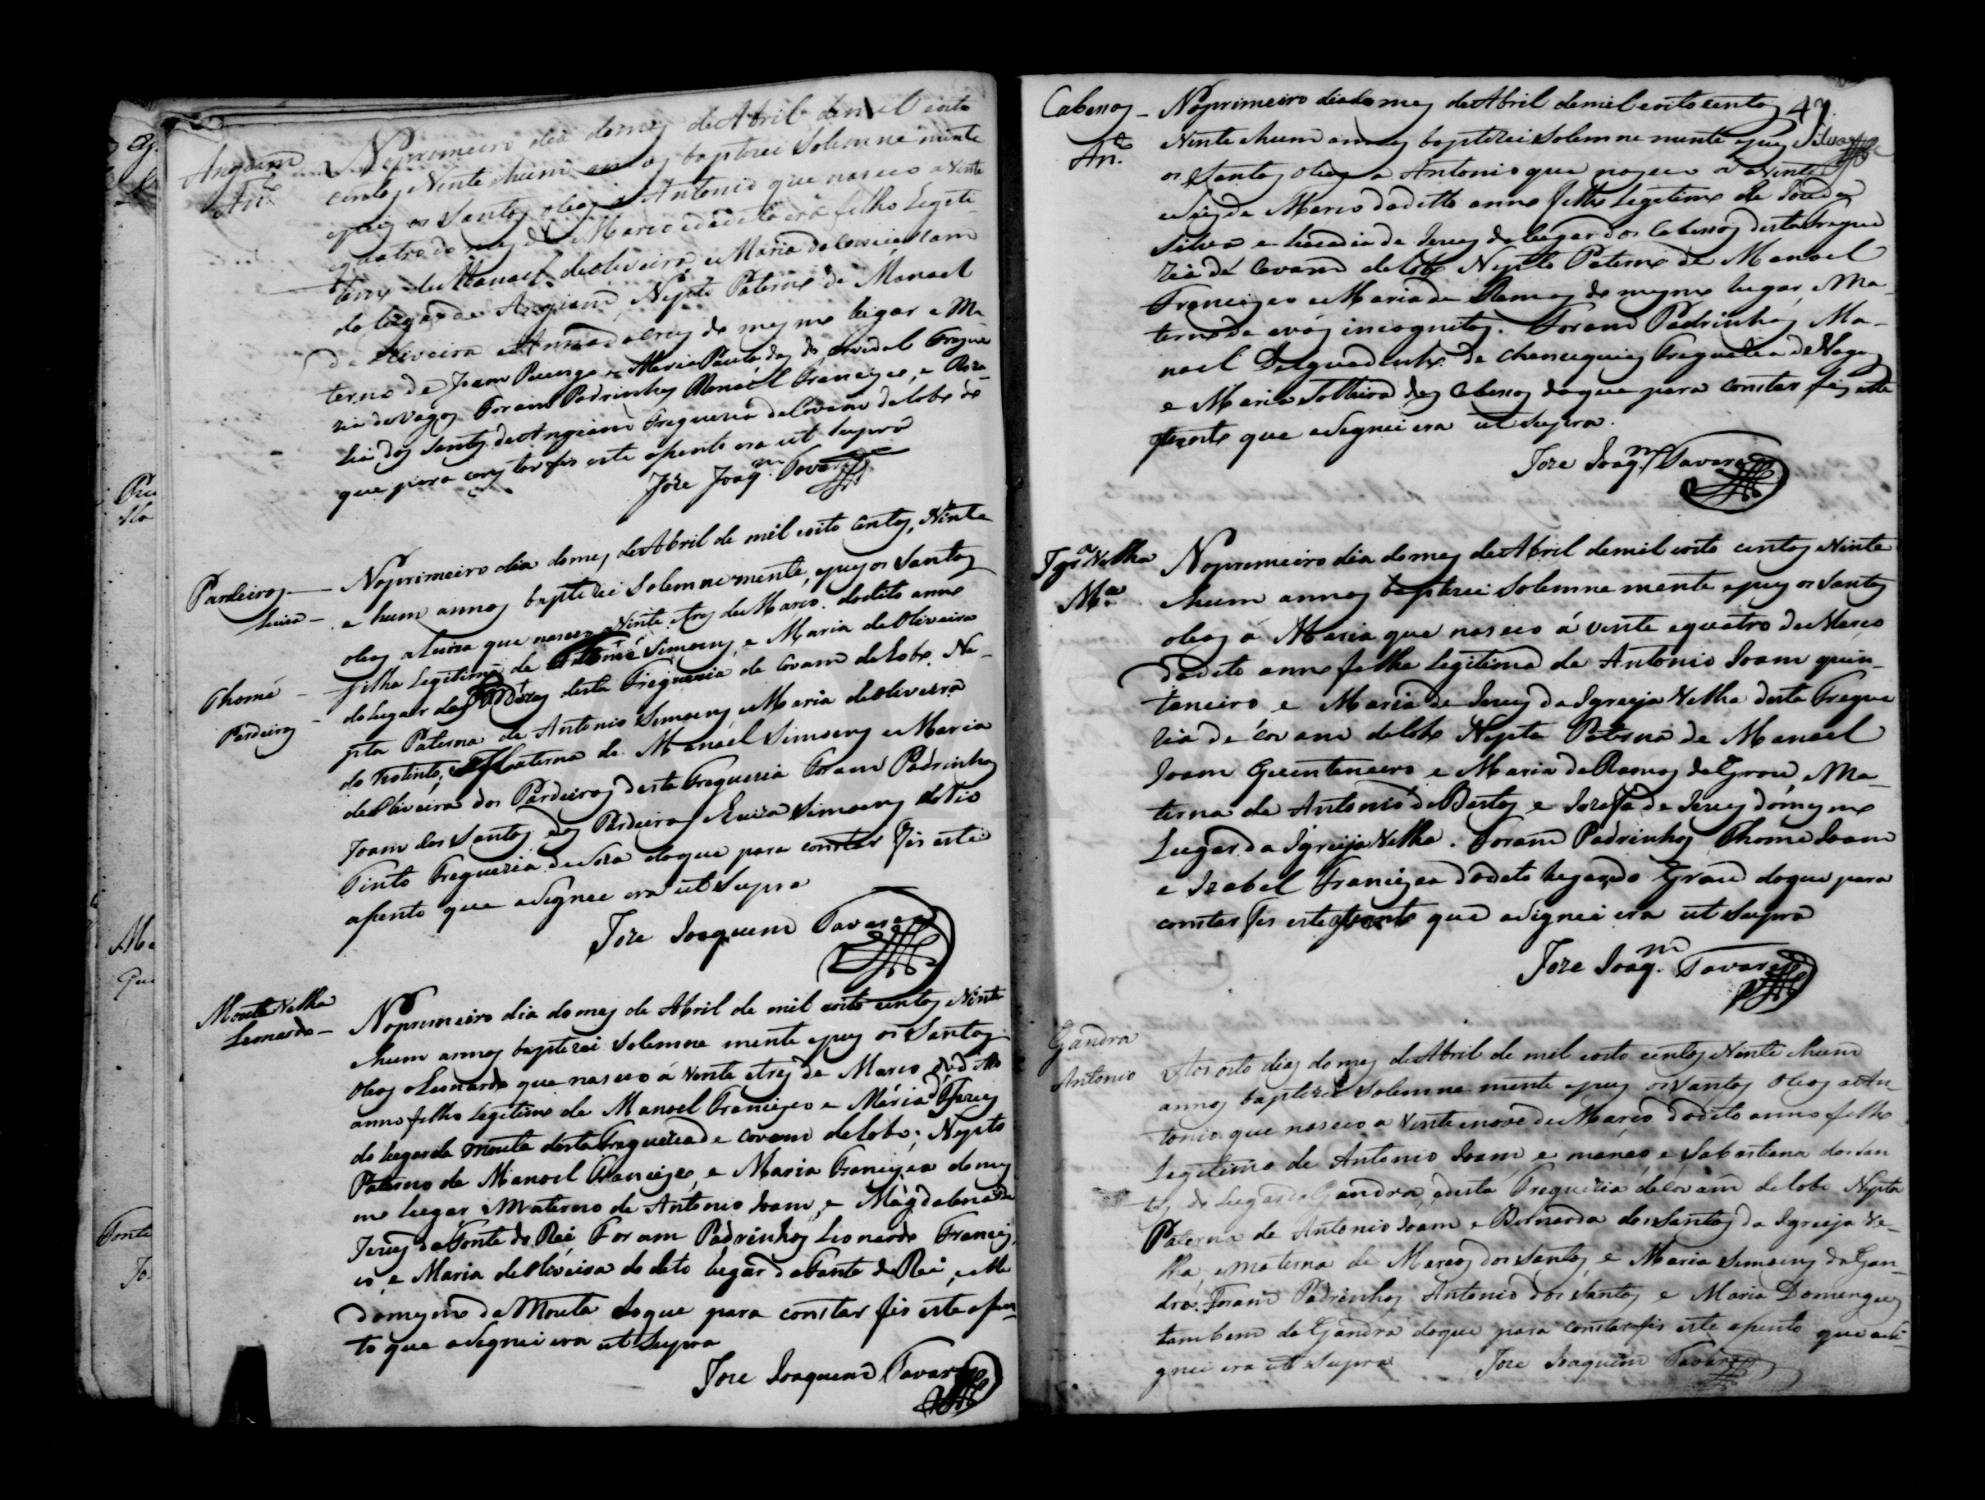 Angiam
An.to
No primeiro dia do mes de Abril de mil oito
centos Vinte e hum annos baptizei Solemne mente
e puz os Santos oleos a Antonio que nasceo a Vinte
e quatro do mes de Marco da dita era filho Legiti-
timo de Manoel de oliveira e Maria da Conceicam
do lugar de Angiam, Nepto Paterno de Manoel
de Oliveira e Anna da Cruz do mesmo lugar e Ma-
terno de Joam e Maria Paula dos do Freguę
zia de Vagos Foram Padrinhos Manoel Francisco, e Roza-
lia dos Santos de Angiam Freguezia de Covam do lobo do
que para constar fis este asento era ut Supra
Joze Joaq.m Tavares
Pardeiros
Luiza
Thomé
Pardeiros
No primeiro dia do mes de Abril de mil oito centos, Vinte
e hum annos baptizei Solemnemente, e puz os Santos
oleos a Luiza que nasceo a Vinte e tres de Marco do dito anno
filha Legitima de Simoens, e Maria de Oliveira
do lugar dos Pardeiros desta Freguezia de Covam do lobo, Ne-
pta Paterna de Antonio Simoens e Maria de Oliveira
do Rio tinto, Materna de Manoel Simoens e Maria
de Oliveira dos Pardeiros desta Freguezia Foram Padrinhos
Joam dos Santos dos Pardeiros e Luiza Simoens do Rio
Tinto Freguezia de Soza do que para constar fis este
asento que asignei era ut Supra
Joze Joaquim Tavares
Mouta Velha
Leonardo
No primeiro dia do mes de Abril de mil oito centos Vinte
e hum annos baptizei Solemne mente e puz os Santos
oleos a Leonardo que nasceo á Vinte e tres de Marco do ditto
anno filho Legitimo de Manoel Francisco e Maria de Jezus
do lugar da Mouta desta Freguezia de Covam do lobo; Nepto
Paterno de Manoel Francisco, e Maria Francisca do mes
mo lugar e Materno de Antonio Joam, e Magdalena de
Jezus da Fonte do Rei Foram Padrinhos Leonardo Francis
co, e Maria de Oliveira do dito lugar da Fonte do Rei, e elle
do mesmo da Mouta do que para constar fis este asen-
to que asignei era ut Supra
Joze Joaquim Tavares
47
Silva
Cabesos
An.to
No primeiro dia do mes de Abril de mil oito centos
Vinte e hum annos baptizei Solemne mente e puz
os Santos oleos a Antonio que nasceo a vinte
e seis de Marco do ditto anno filho Legitimo de Joze da
Silva e Luzia de Jezus do lugar dos Cabesos desta Fregue
zia de Covam do lobo Nepto Paterno de Manoel
Francisco e Maria de Ramos do mesmo lugar e Ma-
terno de avós incognitos. Foram Padrinhos Ma-
noel de Freguezia de Vagos
e Maria Solteira dos Cabesos do que para constar fis este
asento que asignei era ut Supra.
Joze Joaq.m Tavares
Igr.a Velha
M.a
No primeiro dia do mes de Abril de mil oito centos e Vinte
e hum annos baptizei Solemne mente e puz os Santos
oleos a Maria que nasceo á vinte e quatro de Marco
do dito anno filha legitima de Antonio Joam quin-
taneiro e Maria de Jezus da Igreija Velha desta Fregue
zia de Covam do lobo Nepta Paterna de Manoel
Joam Quintaneiro e Maria de Ramos de Grou e Ma-
terna de Antonio de Bastos e Jozefa de Jezus do mesmo
Lugar da Igreija Velha. Foram Padrinhos Thome Joam
e Izabel Francisca do dito lugar do Grou do que para
constar fis este asento que asignei era ut Supra
Joze Joaq.m Tavares
Gandra
Antonio
Aos oito dias do mes de Abril de mil oito centos Vinte e hum
annos baptizei Solemne mente e puz os Santos oleos a An
tonio que nasceo a Vinte e nove de Marco do dito anno filho
Legitimo de Antonio Joam e e Sabastiana dos San
tos do Lugar da Gandra, desta Freguezia de Covam do lobo Nepto
Paterno de Antonio Joam e Bernarda dos Santos da Igreija Ve-
lha, e materna de Marcos dos Santos e Maria Simoens da Gan-
dra. Foram Padrinhos Antonio dos Santos e Maria Domingues
tambem da Gandra do que para constar fis este asento que asi-
gnei era ut Supra
Joze Joaquim Tavares